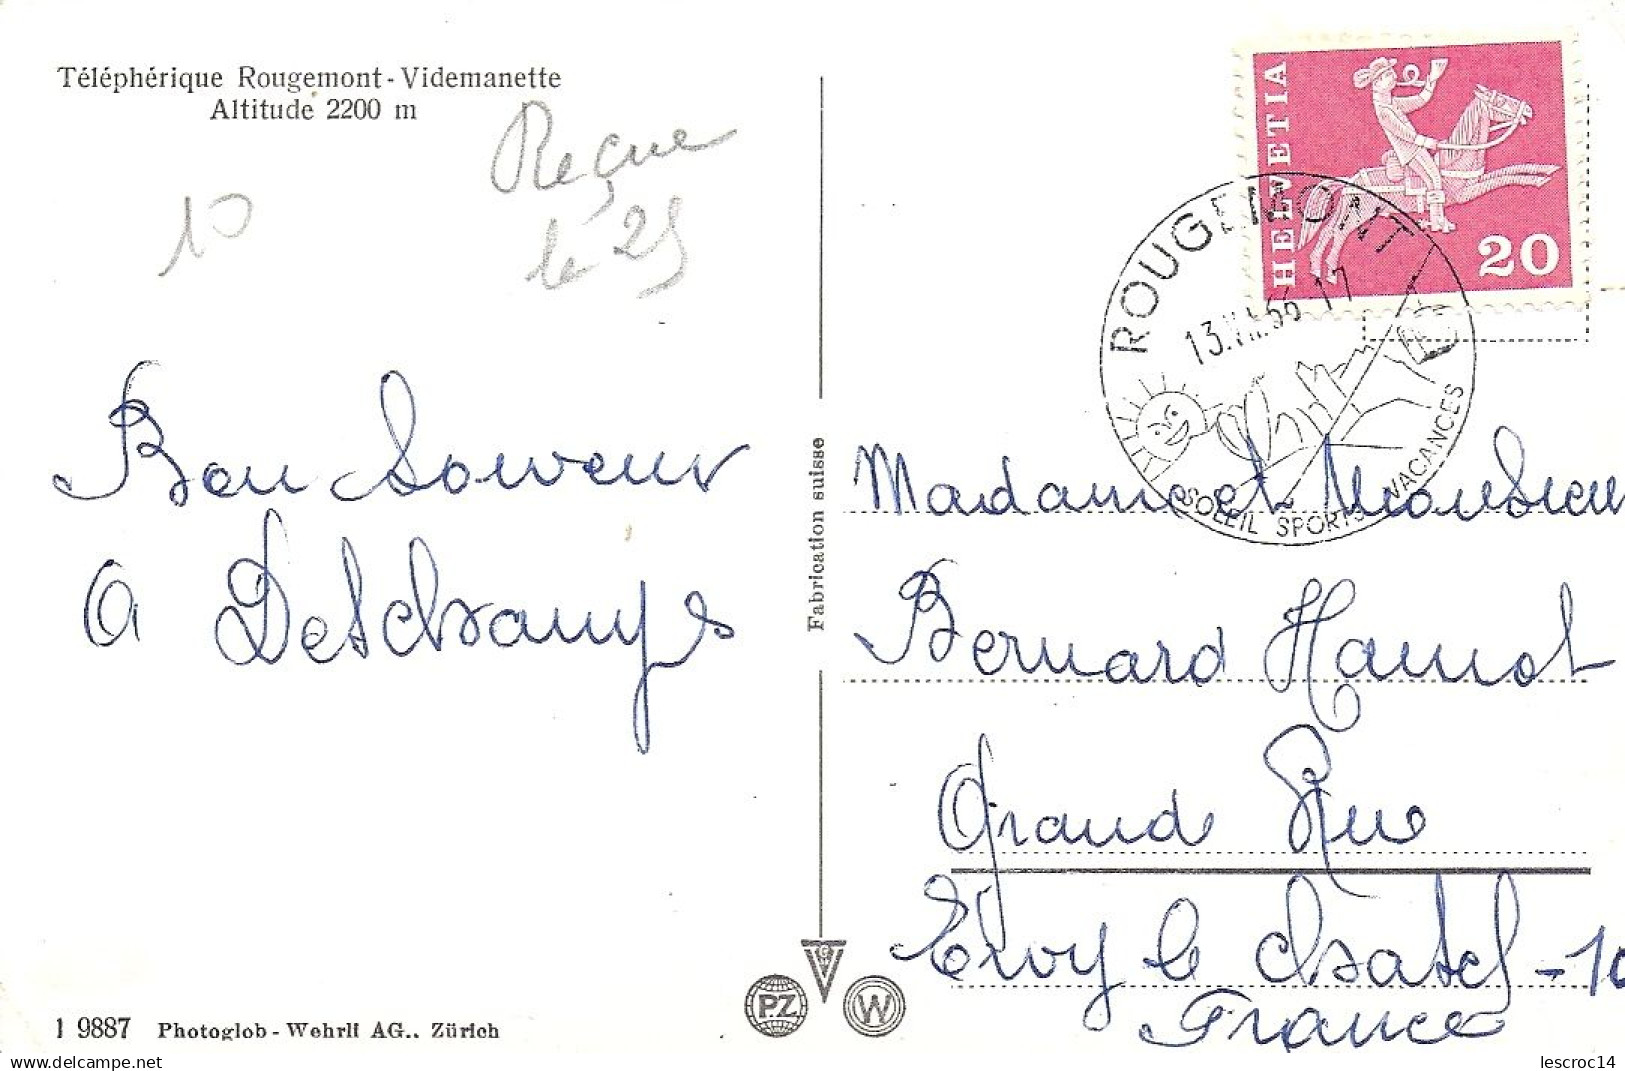 Téléphérique Rougemont - Videmanette
Altitude 2200 m
Reçue
le 25
10
Bon Souveur
A Deschamps
Fabrication suisse
1 9887 Photoglob - Wehrli AG., Zürich
PZ
W
HELVETIA
20
ROUGEMONT
13. 66 17
SOLEIL SPORTS VACANCES
Madame et Monsieur
Bernard Hamot
Grande Rue
Ervy le chatel - 10
France
lescroc14